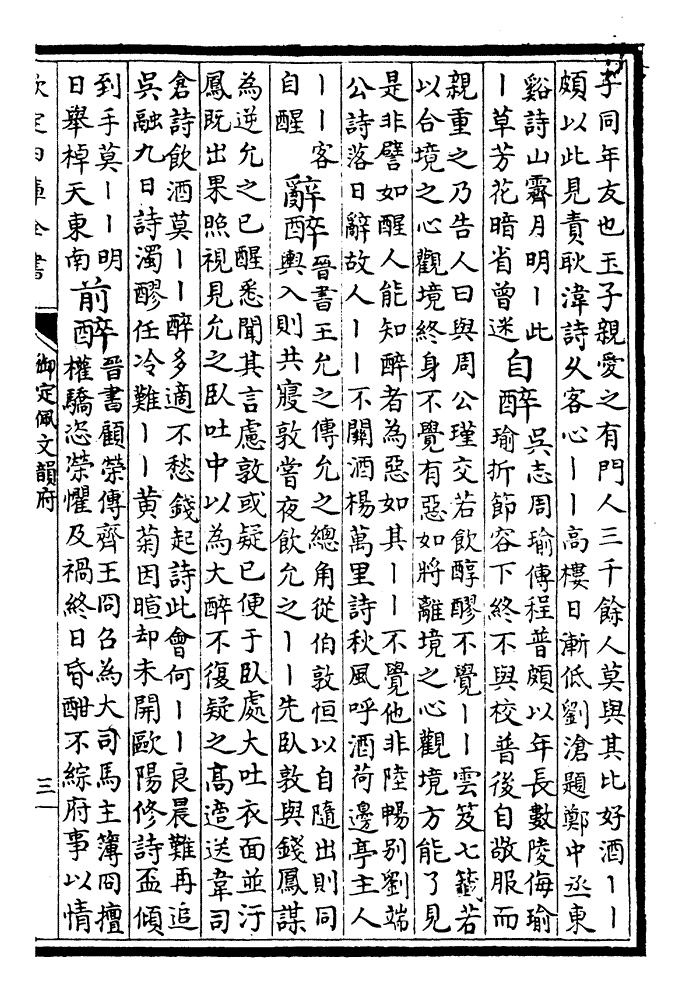 子同年友也玉子親愛之有門人三千餘人莫與其比好酒丨丨
頗以此見責耿湋詩久客心丨丨高樓日漸低劉滄題鄭中丞東
谿詩山霽月明丨此
丨草芳花暗省曾迷
自醉
吳志周瑜傳程普頗以年長數陵侮瑜
瑜折節容下終不與校普後自敬服而
親重之乃告人曰與周公瑾交若飲醇醪不覺丨丨雲笈七籤若
以合境之心觀境終身不覺有惡如將離境之心觀境方能了見
是非譬如醒人能知醉者為惡如其丨丨不覺他非陸暢別劉端
公詩落日辭故人丨丨不關酒楊萬里詩秋風呼酒荷邊亭主人
丨丨客
自醒
辭醉
晉書王允之傳允之總角從伯敦恒以自隨出則同
輿入則共寢敦嘗夜飲允之丨丨先臥敦與錢鳳謀
為逆允之已醒悉聞其言慮敦或疑已便于臥處大吐衣面並汙
鳳既出果照視見允之臥吐中以為大醉不復疑之高適送韋司
倉詩飲酒莫丨丨醉多適不愁錢起詩此會何丨丨良晨難再追
吳融九日詩濁醪任冷難丨丨黃菊因暄却未開歐陽修詩盃傾
到手莫丨丨明
日舉棹天東南
前醉
晉書顧榮傳齊王冏召為大司馬主簿冏擅
權驕恣榮懼及禍終日昏酣不綜府事以情
欽定四庫全書
御定佩文韻府
三